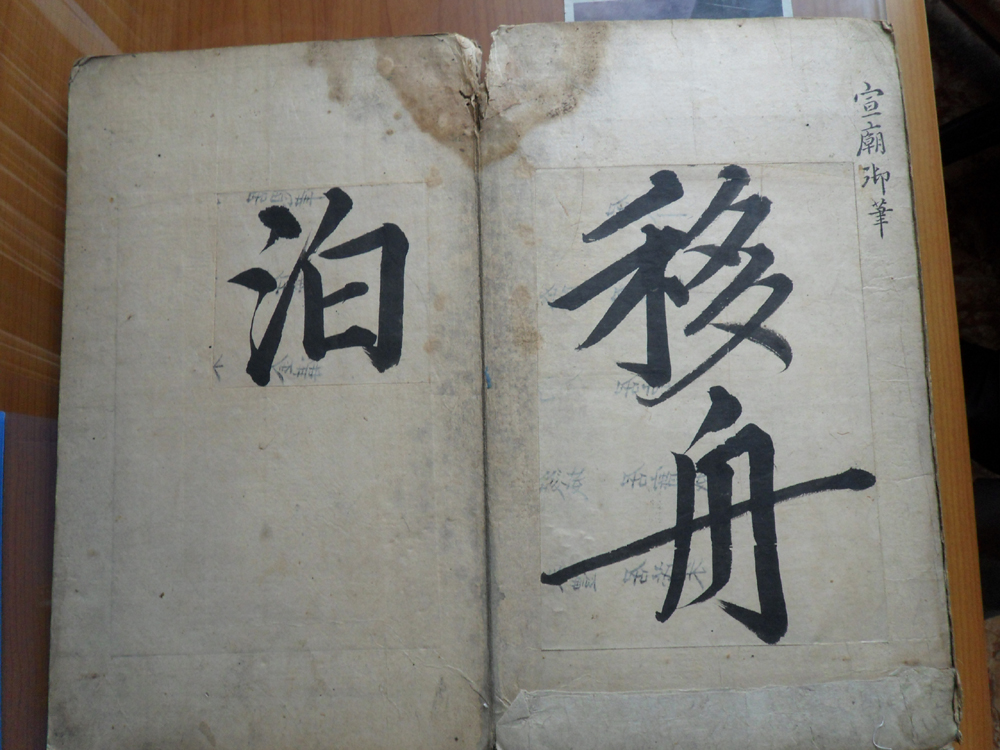 宣廟御筆
移舟
泊